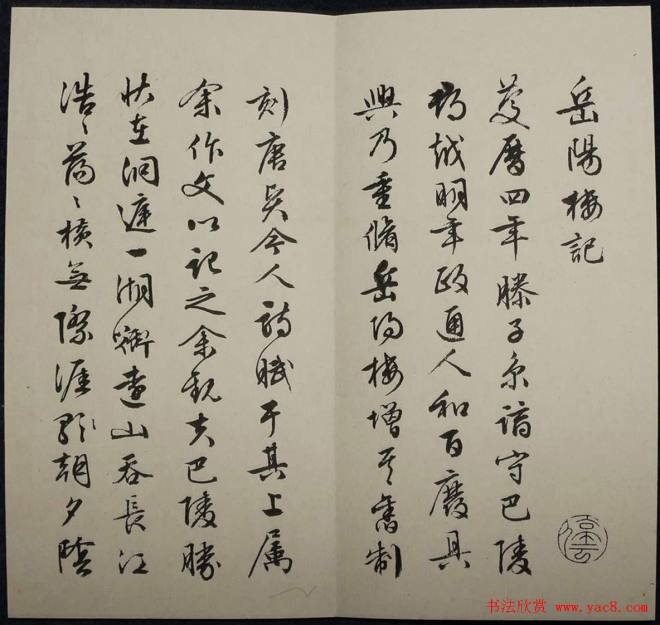 岳陽樓記
慶曆四年滕子京謫守巴陵
郡越明年政通人和百廢具
興乃重脩岳陽樓增其舊制
刻唐賢今人詩賦于其上屬
余作文以記之余觀夫巴陵勝
狀在洞庭一湖銜遠山吞長江
浩〻蕩〻橫無際涯朝夕陰
书法欣赏 www.yac8.com